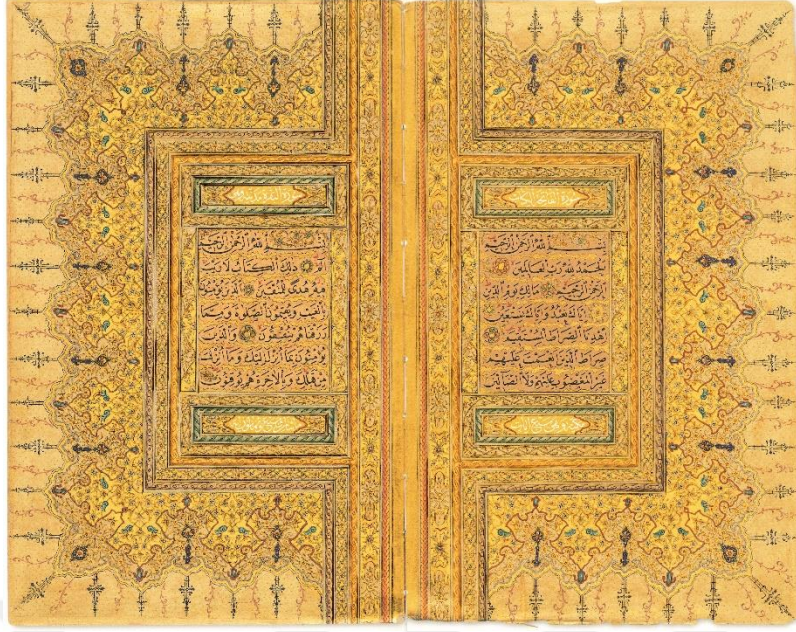 بِسْمِ اللّٰهِ الرَّحْمٰنِ الرَّحِيمِ
اَلْحَمْدُ لِلّٰهِ رَبِّ الْعَالَمِينَ
اَلرَّحْمٰنِ الرَّحِيمِ مَالِكِ يَوْمِ الدِّينِ
اِيَّاكَ نَعْبُدُ وَاِيَّاكَ نَسْتَعِينُ
اِهْدِنَا الصِّرَاطَ الْمُسْتَقِيمَ
صِرَاطَ الَّذِينَ اَنْعَمْتَ عَلَيْهِمْ
غَيْرِ الْمَغْضُوبِ عَلَيْهِمْ وَلَا الضَّالِّينَ
بِسْمِ اللّٰهِ الرَّحْمٰنِ الرَّحِيمِ
الٓمٓ ذٰلِكَ الْكِتَابُ لَا رَيْبَ
فِيهِ هُدًى لِلْمُتَّقِينَ اَلَّذِينَ يُؤْمِنُونَ
بِالْغَيْبِ وَيُقِيمُونَ الصَّلٰوةَ وَمِمَّا
رَزَقْنَاهُمْ يُنْفِقُونَ وَالَّذِينَ
يُؤْمِنُونَ بِمَا اُنْزِلَ اِلَيْكَ وَمَا اُنْزِلَ
مِنْ قَبْلِكَ وَبِالْاٰخِرَةِ هُمْ يُوقِنُونَ